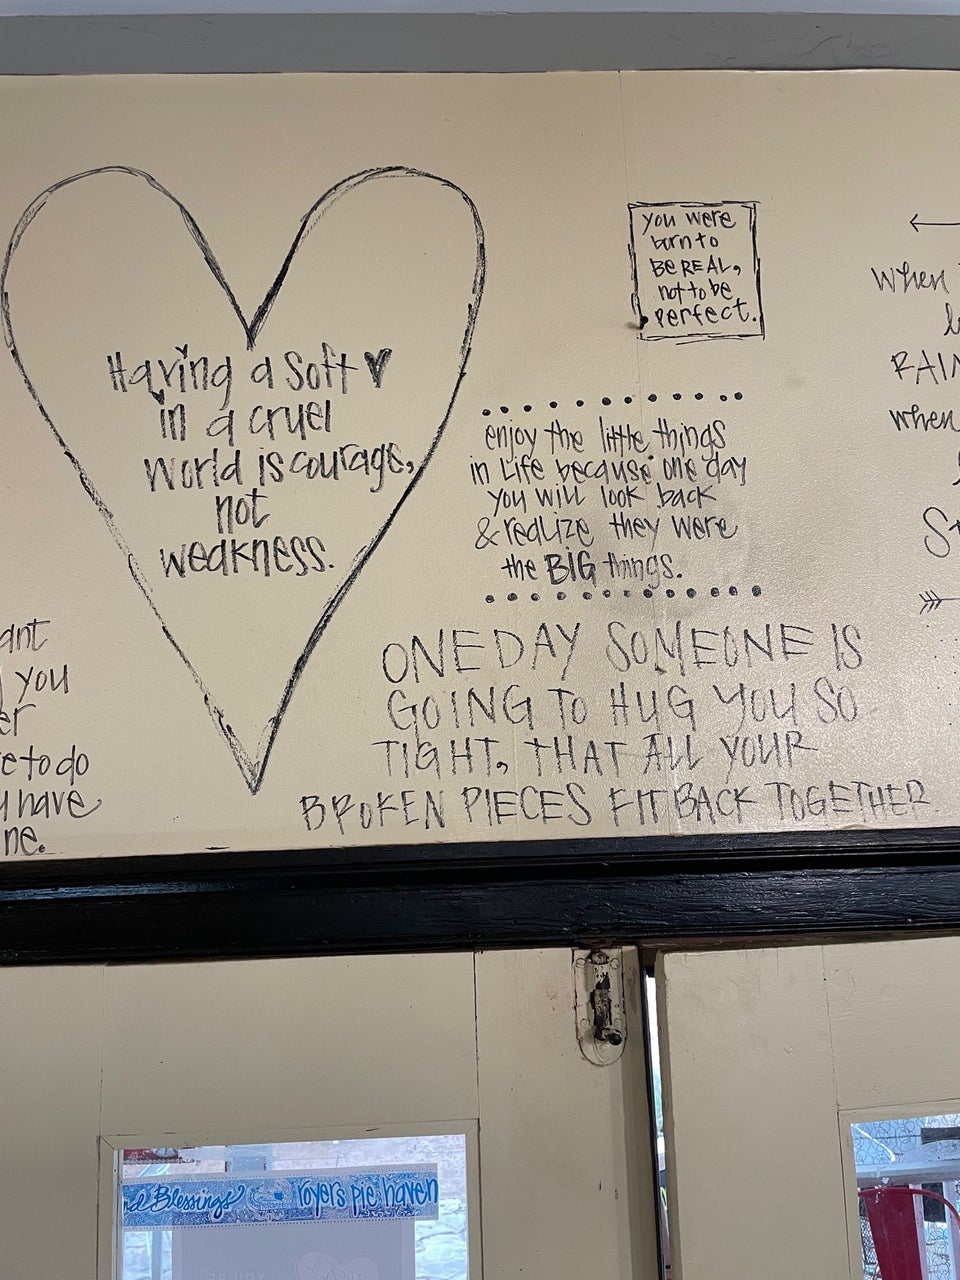 Having a Soft
in a cruel
World is courage,
not
weakness.
you were
born to
Be REAL,
not to be
perfect.
enjoy the little things
in Life because one day
you will look back
& realize they were
the BIG things.
ONE DAY SOMEONE IS
GOING TO HUG YOU SO
TIGHT, THAT ALL YOUR
BROKEN PIECES FIT BACK TOGETHER
you
e to do
have
ne.
When
RAIN
when
St
Blessings royers pie haven